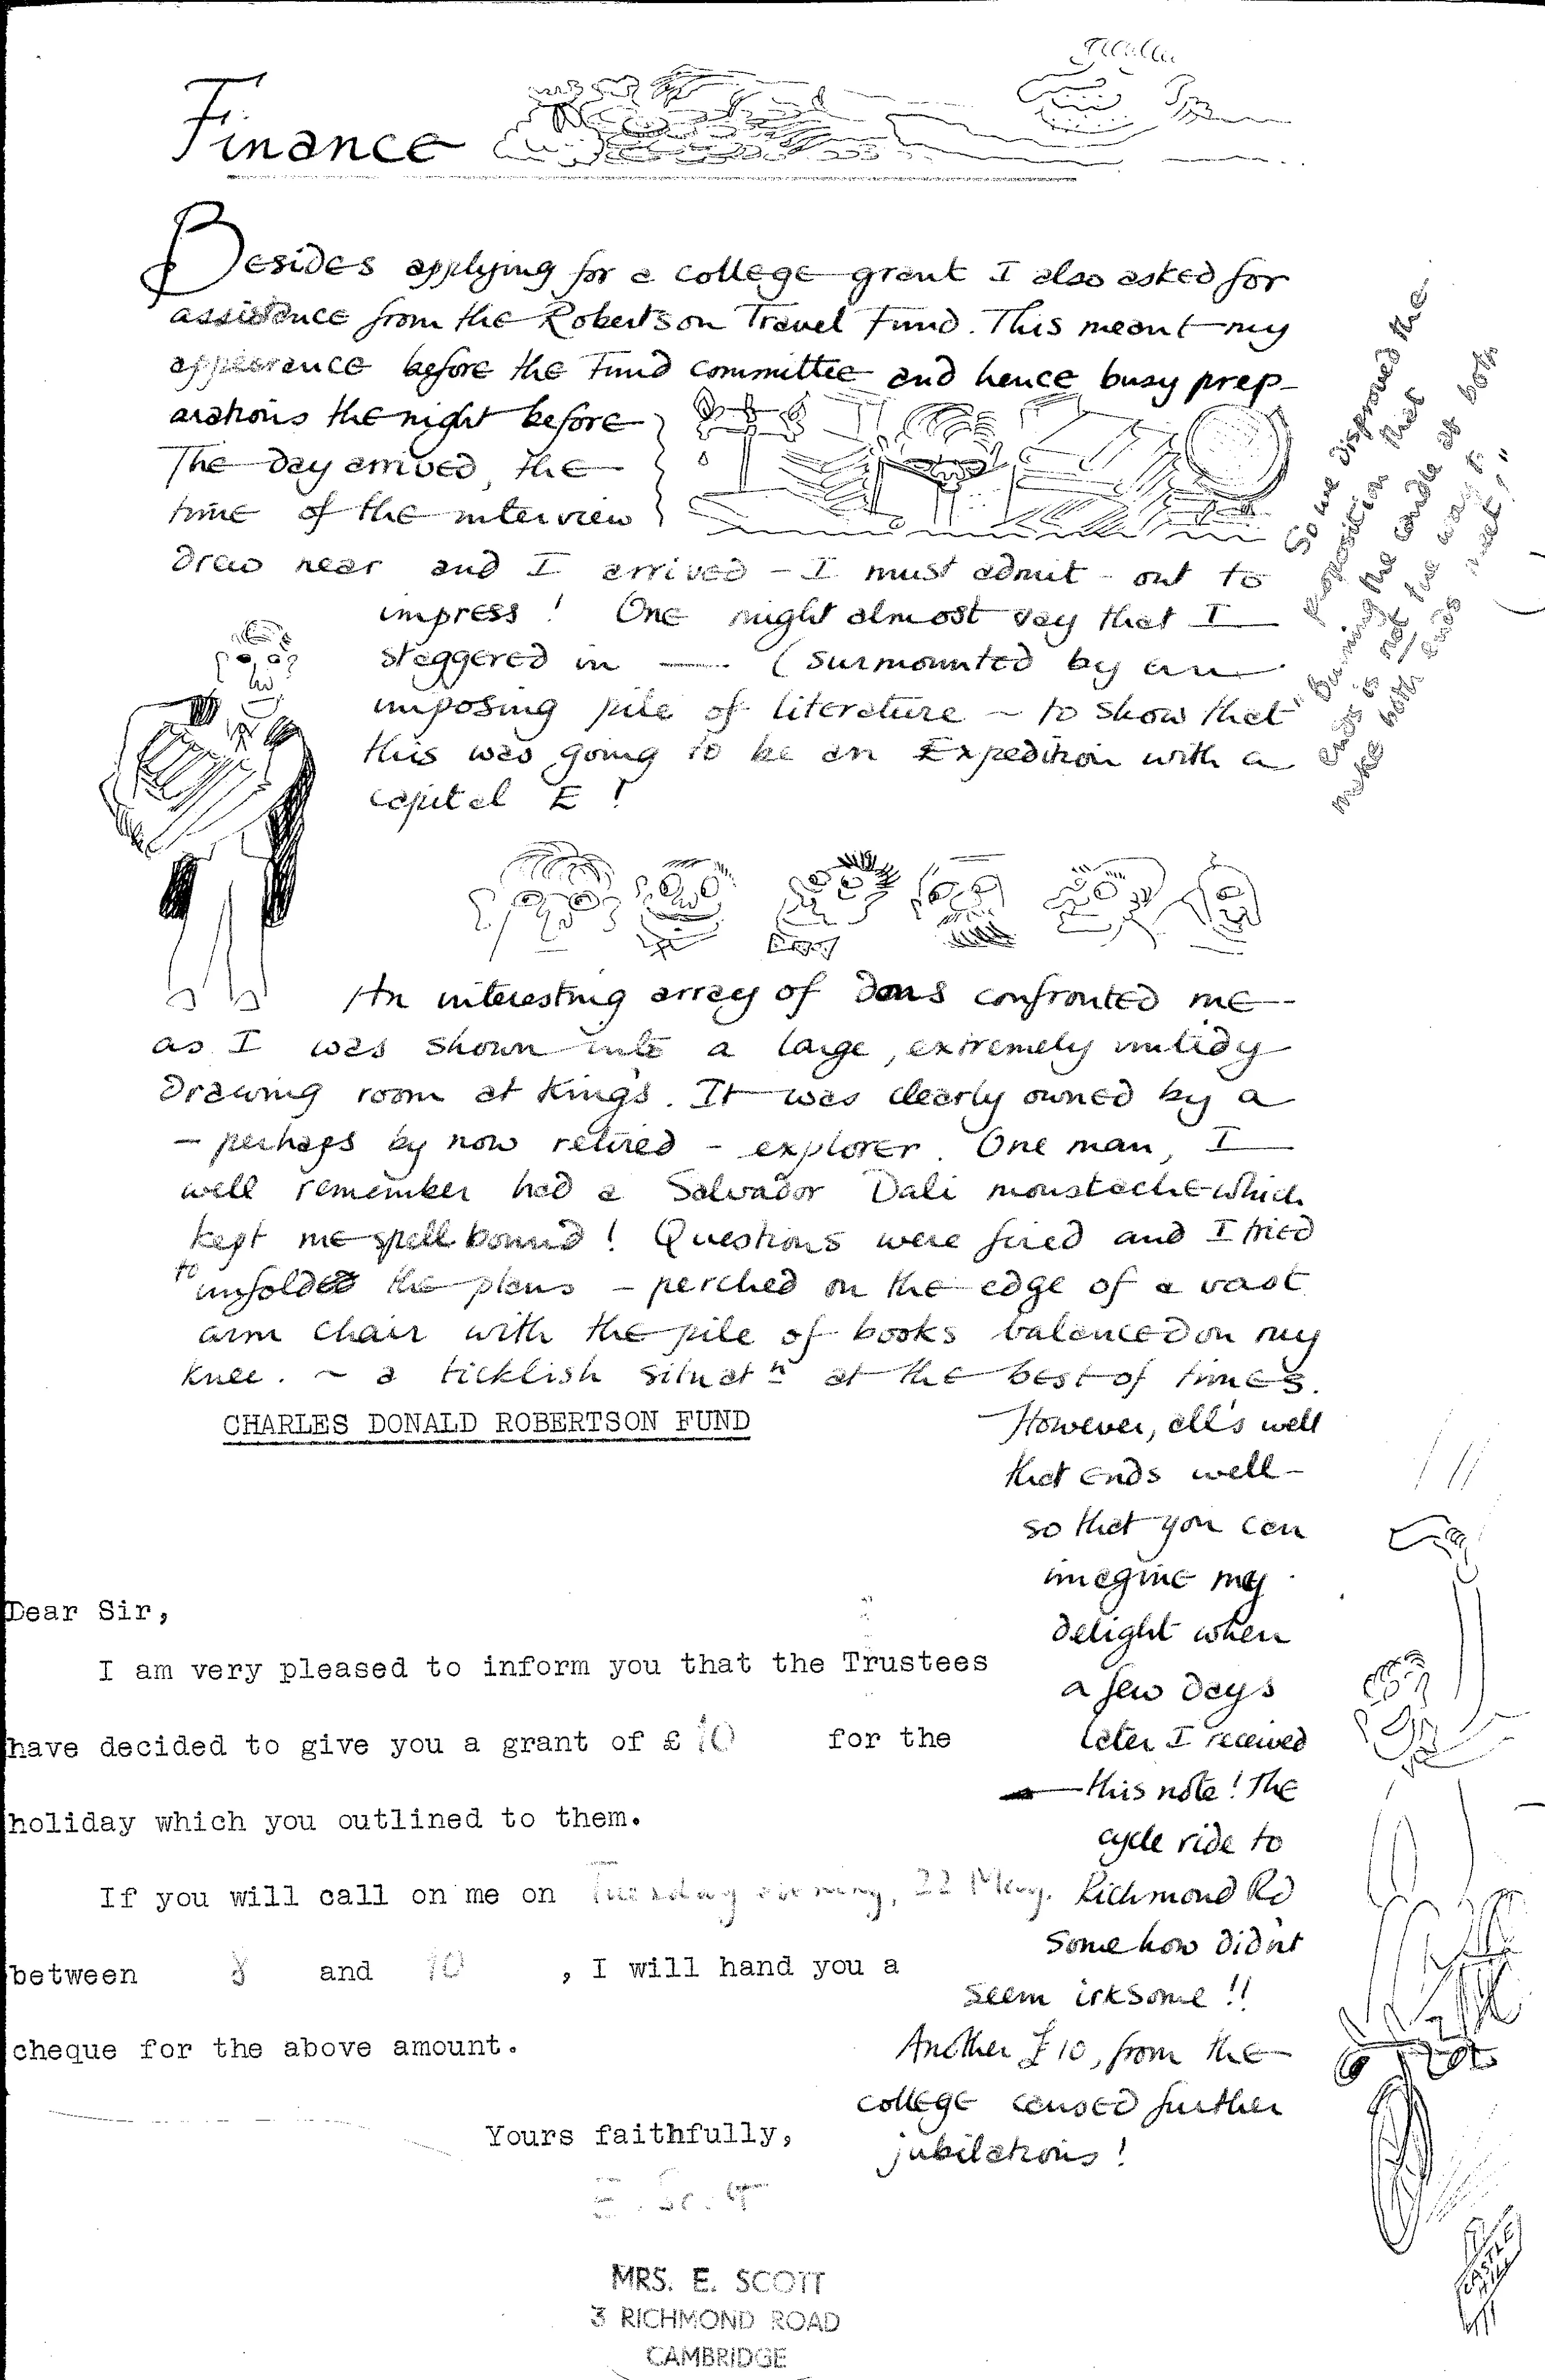 Finance
Besides applying for a college grant I also asked for
assistance from the Robertson Travel Fund. This meant my
appearance before the Fund committee and hence busy prep-
arations the night before
The day arrived, the
time of the interview
drew near and I arrived - I must admit - out to
impress! One might almost say that I
staggered in — (surmounted by an
imposing pile of literature ~ to show that
this was going to be an Expedition with a
capital E!
So we disproved the
proposition that
"burning the candle at both
ends is not the way to
make both ends meet!"
An interesting array of dons confronted me
as I was shown into a large, extremely untidy
drawing room at King's. It was clearly owned by a
- perhaps by now retired - explorer. One man, I
well remember had a Salvador Dali moustache which
kept me spell bound! Questions were fired and I tried
to unfold the plans - perched on the edge of a vast
arm chair with the pile of books balanced on my
knee. ~ a ticklish situatn at the best of times.
However, all's well
that ends well -
so that you can
imagine my
delight when
a few days
later I received
this note! The
cycle ride to
Richmond Rd
Somehow didn't
seem irksome!!
Another £10, from the
college caused further
jubilations!
CHARLES DONALD ROBERTSON FUND
Dear Sir,
I am very pleased to inform you that the Trustees
have decided to give you a grant of £ 10 for the
holiday which you outlined to them.
If you will call on me on Tuesday evening, 22 May.
between 8 and 10 , I will hand you a
cheque for the above amount.
Yours faithfully,
E. Scott
MRS. E. SCOTT
3 RICHMOND ROAD
CAMBRIDGE
CASTLE